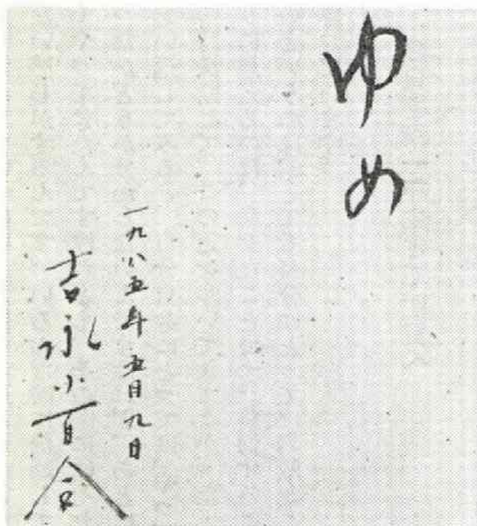 ゆめ
一九八五年五月九日
吉永小百合